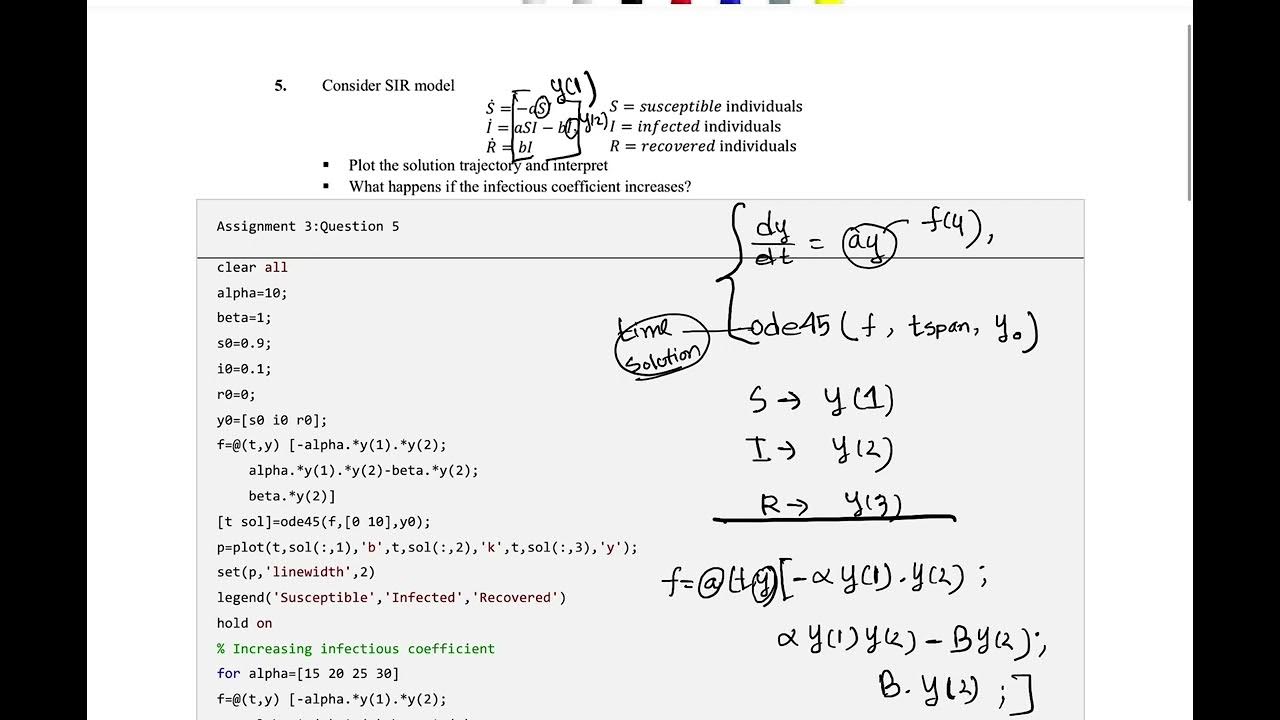 5. Consider SIR model
y(1)
Ṡ = -aS S = susceptible individuals
İ = aSI − bI y(2) I = infected individuals
Ṙ = bI R = recovered individuals
▪ Plot the solution trajectory and interpret
▪ What happens if the infectious coefficient increases?
Assignment 3:Question 5
dy/dt = ay f(y),
clear all
alpha=10;
beta=1;
time solution ode45(f, tspan, y₀)
s0=0.9;
i0=0.1;
r0=0;
S → y(1)
y0=[s0 i0 r0];
f=@(t,y) [-alpha.*y(1).*y(2);
I → y(2)
alpha.*y(1).*y(2)-beta.*y(2);
beta.*y(2)]
R → y(3)
[t sol]=ode45(f,[0 10],y0);
p=plot(t,sol(:,1),'b',t,sol(:,2),'k',t,sol(:,3),'y');
set(p,'linewidth',2)
f=@(t,y)[-α y(1).y(2);
legend('Susceptible','Infected','Recovered')
hold on
% Increasing infectious coefficient
α y(1) y(2) − B y(2);
for alpha=[15 20 25 30]
B. y(2) ;]
f=@(t,y) [-alpha.*y(1).*y(2);